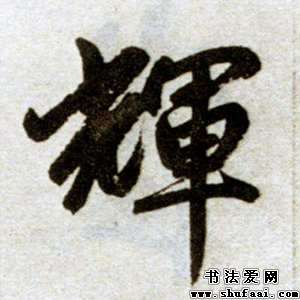 輝
书法爱网
www.shufaai.com